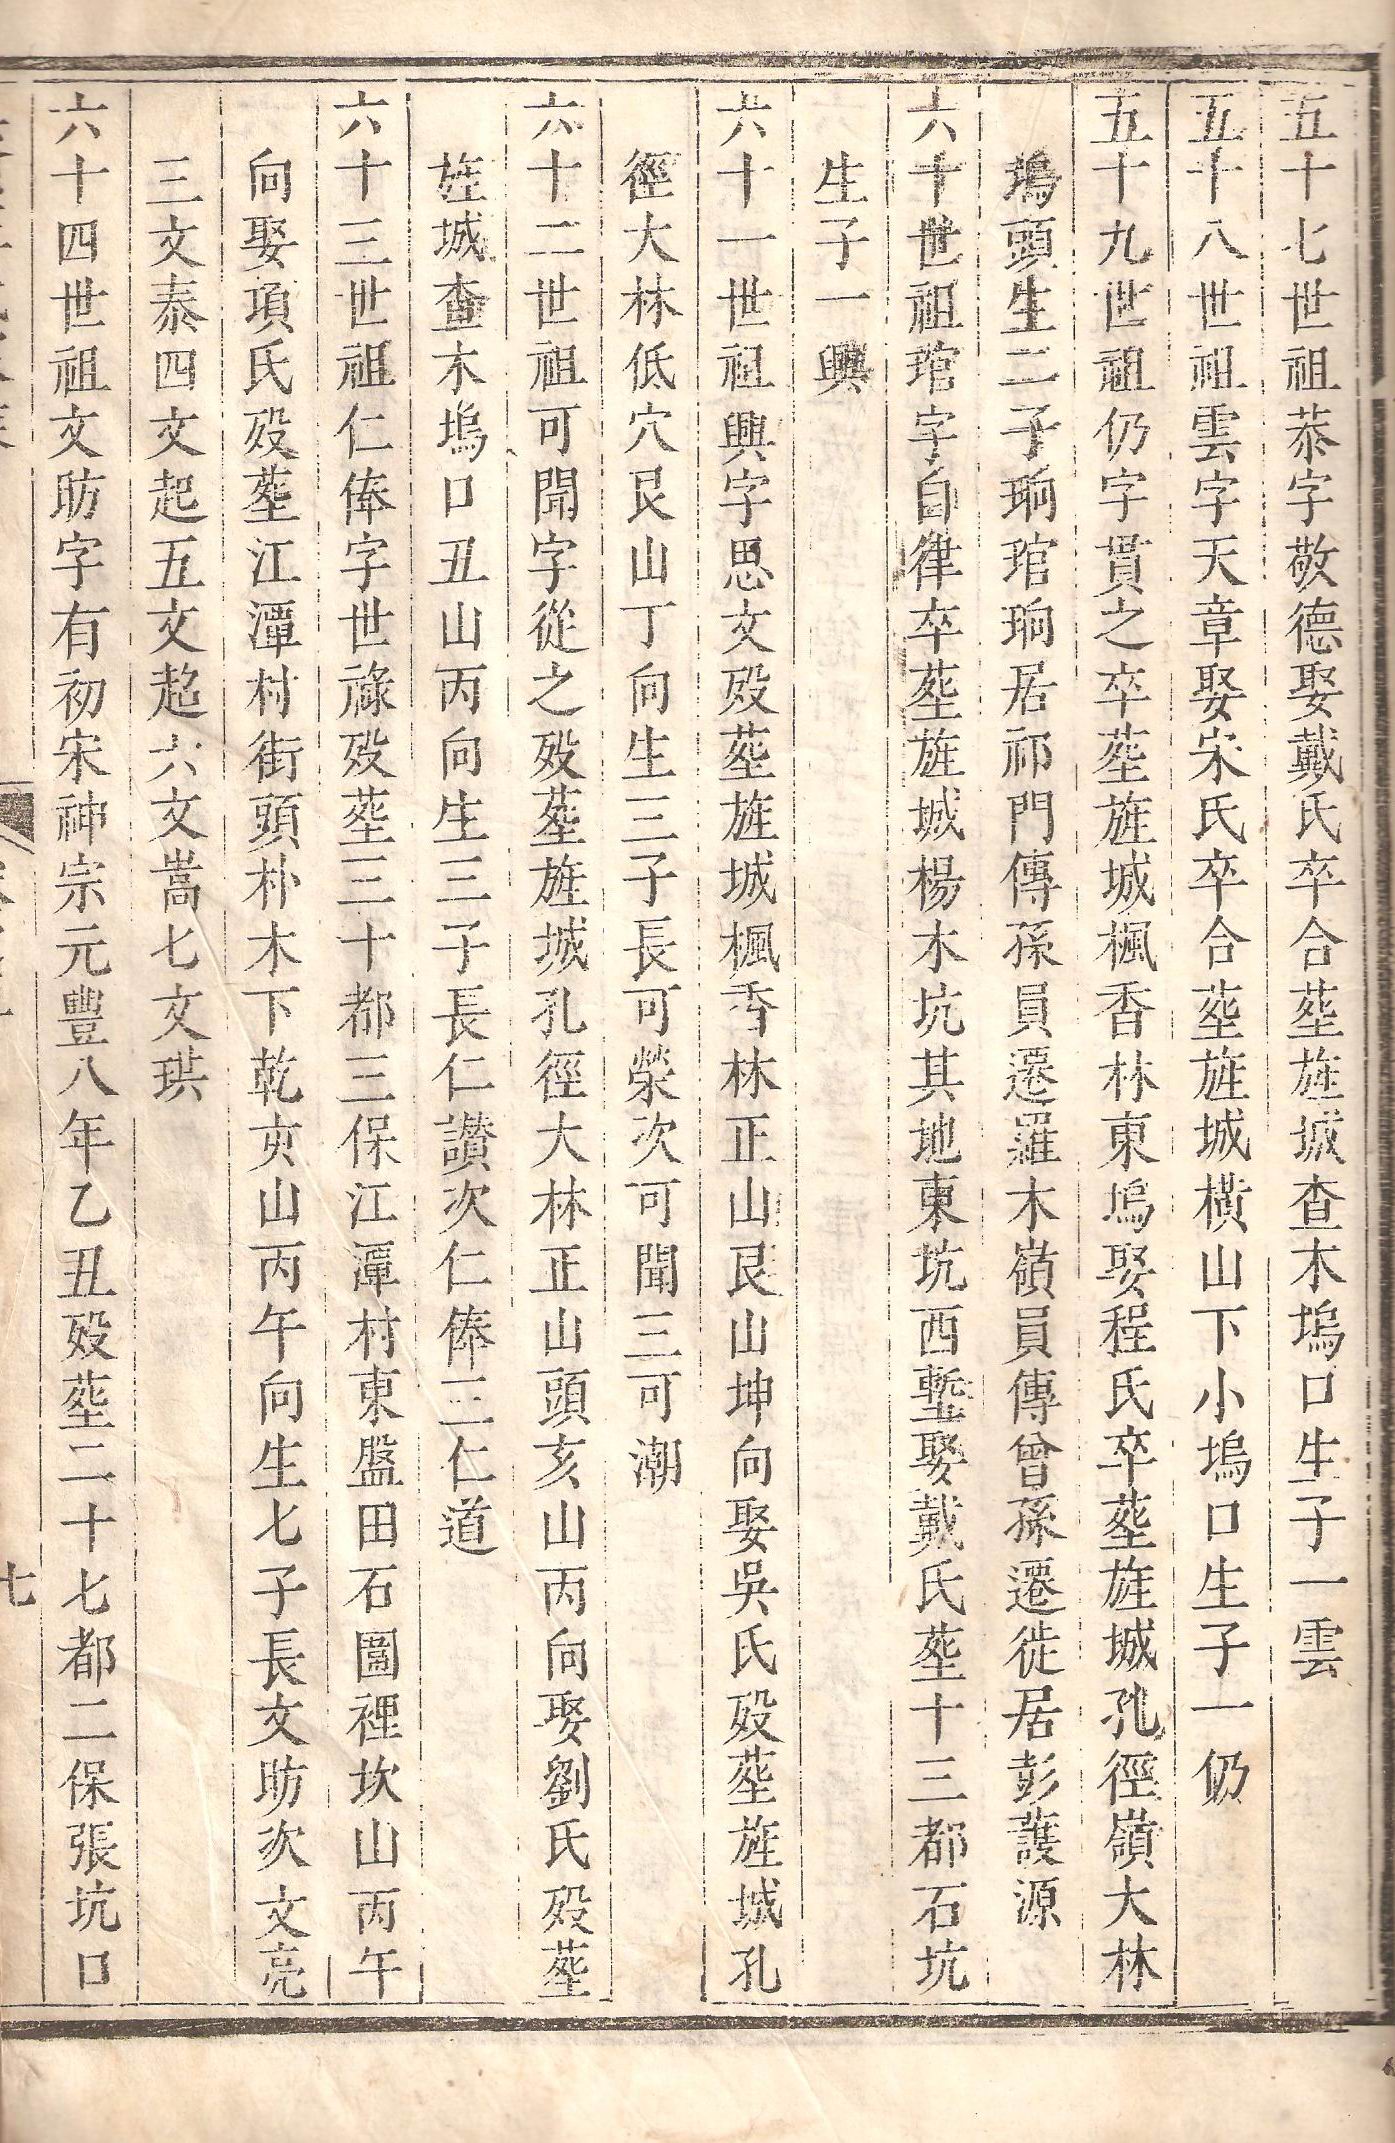 五十七世祖恭字敬德娶戴氏卒合塟旌城查木塢口生子一雲
五十八世祖雲字天章娶宋氏卒合塟旌城橫山下小塢口生子一仍
五十九世祖仍字貫之卒塟旌城楓香林東塢娶程氏卒塟旌城孔徑嶺大林
塢頭生二子珦琯珦居祁門傳孫員遷羅木嶺員傳曾孫遷徙居彭護源
六十世祖琯字自律卒塟旌城楊木坑其地東坑西塹娶戴氏塟十三都石坑
生子一興
六十一世祖興字思文歿塟旌城楓香林正山艮山坤向娶吳氏歿塟旌城孔
徑大林低穴艮山丁向生三子長可榮次可聞三可潮
六十二世祖可聞字從之歿塟旌城孔徑大林正山頭亥山丙向娶劉氏歿塟
旌城查木塢口丑山丙向生三子長仁讚次仁俸三仁道
六十三世祖仁俸字世祿歿塟三十都三保江潭村東盤田石圖裡坎山丙午
向娶項氏歿塟江潭村街頭朴木下乾亥山丙午向生七子長文昉次文亮
三文泰四文起五文趂六文嵩七文珙
六十四世祖文昉字有初宋神宗元豐八年乙丑歿塟二十七都二保張坑口
七